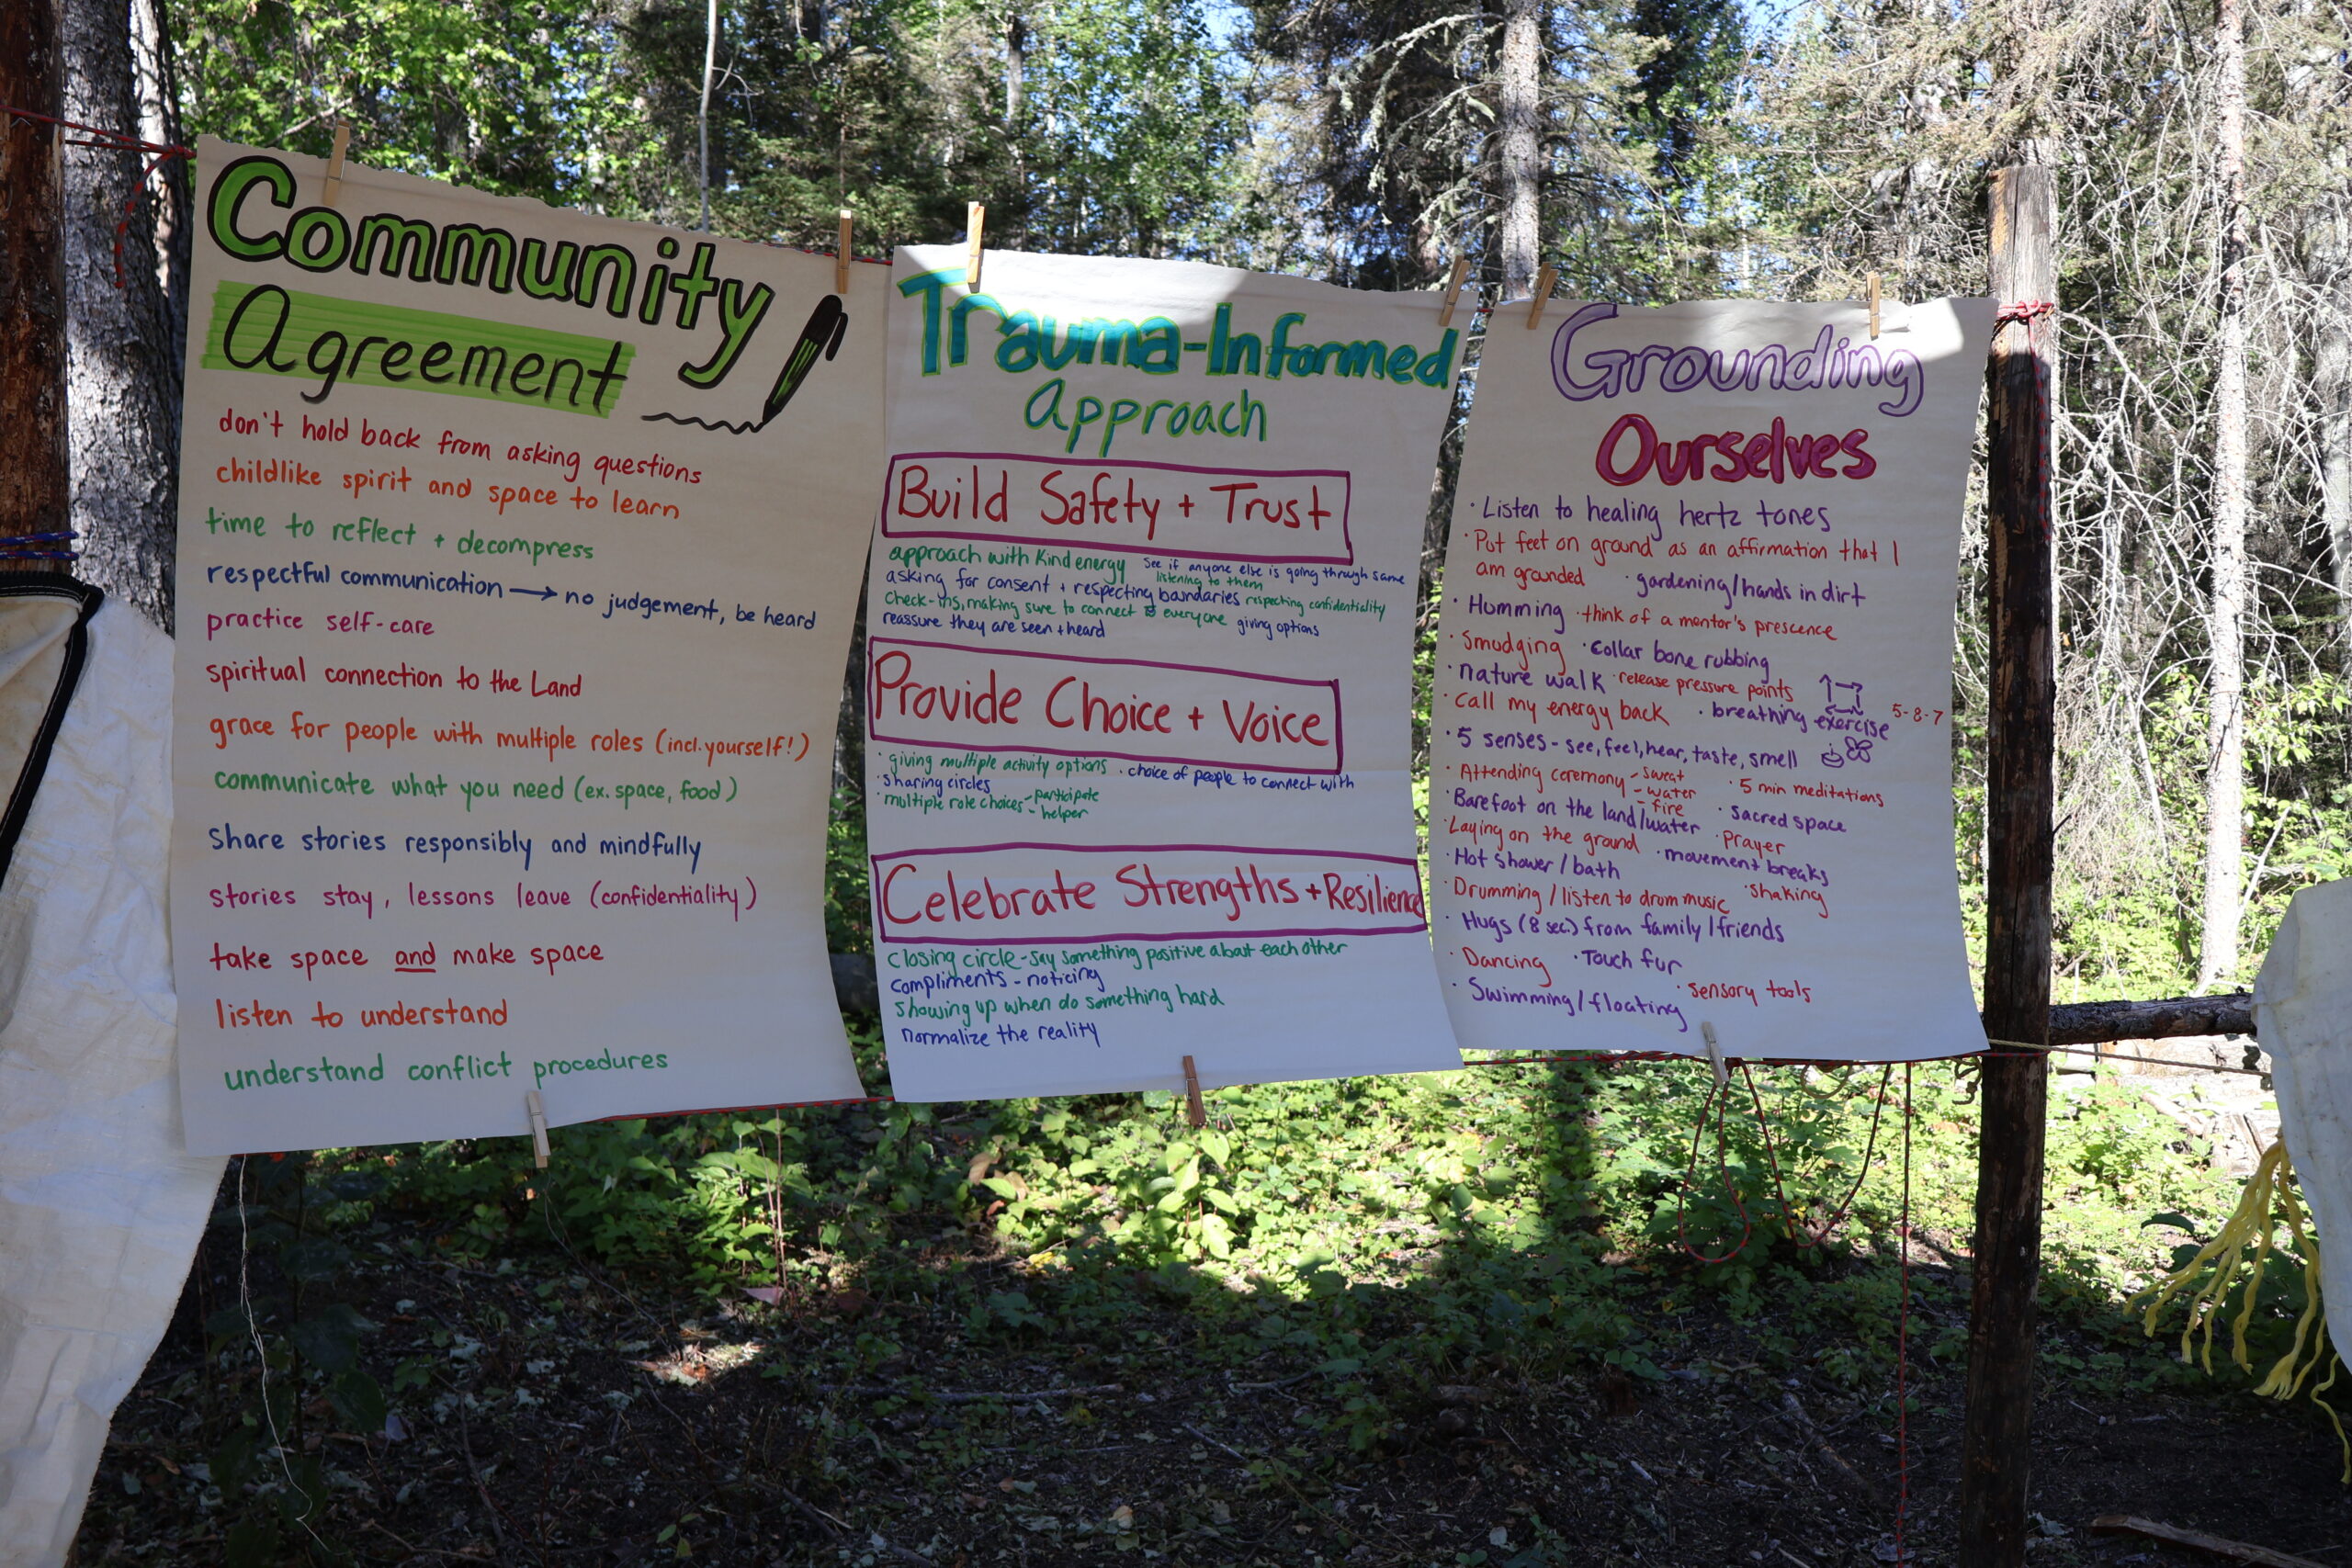 Community
Agreement
don't hold back from asking questions
childlike spirit and space to learn
time to reflect + decompress
respectful communication → no judgement, be heard
practice self-care
spiritual connection to the Land
grace for people with multiple roles (incl. yourself!)
communicate what you need (ex. space, food)
Share stories responsibly and mindfully
stories stay, lessons leave (confidentiality)
take space and make space
listen to understand
understand conflict procedures
Trauma-Informed
Approach
Build Safety + Trust
approach with kind energy See if anyone else is going through same
listening to them
asking for consent + respecting boundaries respecting confidentiality
check-ins, making sure to connect to everyone giving options
reassure they are seen + heard
Provide Choice + Voice
· giving multiple activity options · choice of people to connect with
· sharing circles
· multiple role choices - participate
- helper
Celebrate Strengths + Resilience
closing circle - say something positive about each other
compliments - noticing
showing up when do something hard
normalize the reality
Grounding
Ourselves
· Listen to healing hertz tones
· Put feet on ground as an affirmation that I
am grounded · gardening/hands in dirt
· Humming · think of a mentor's prescence
· Smudging · collar bone rubbing
· nature walk · release pressure points
· call my energy back · breathing exercise 5-8-7
· 5 senses - see, feel, hear, taste, smell
· Attending ceremony - sweat
- water
- fire
· 5 min meditations
· Barefoot on the land/water · sacred space
· Laying on the ground · prayer
· Hot shower / bath · movement breaks
· Drumming / listen to drum music · shaking
· Hugs (8 sec) from family / friends
· Dancing · Touch fur
· Swimming / floating · sensory tools